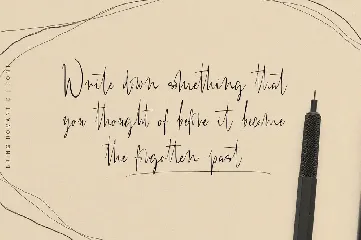 Write down something that
you thought of before it become
the forgotten past